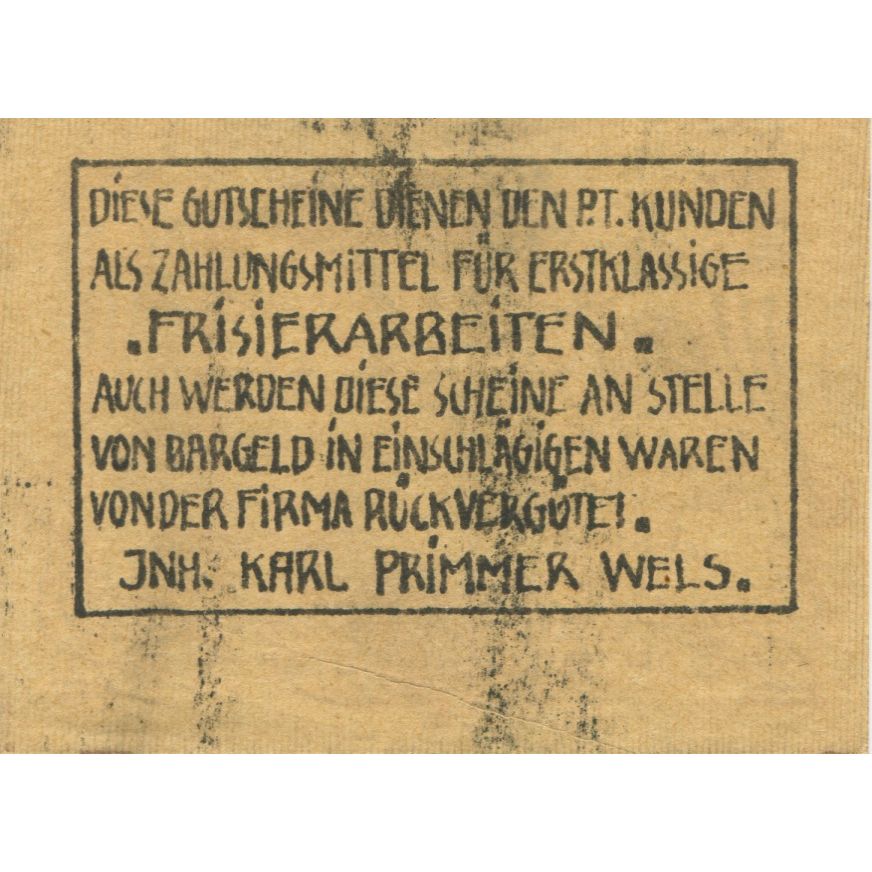 DIESE GUTSCHEINE DIENEN DEN P.T. KUNDEN
ALS ZAHLUNGSMITTEL FÜR ERSTKLASSIGE
.FRISIERARBEITEN.
AUCH WERDEN DIESE SCHEINE AN STELLE
VON BARGELD IN EINSCHLÄGIGEN WAREN
VON DER FIRMA RÜCKVERGÜTET.
JNH. KARL PRIMMER WELS.